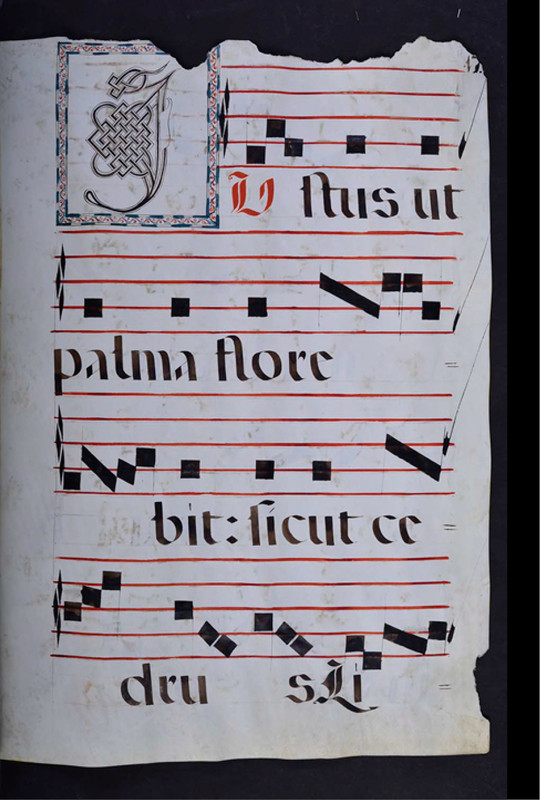 JUstus ut
palma flore
bit: sicut ce
dru sLi